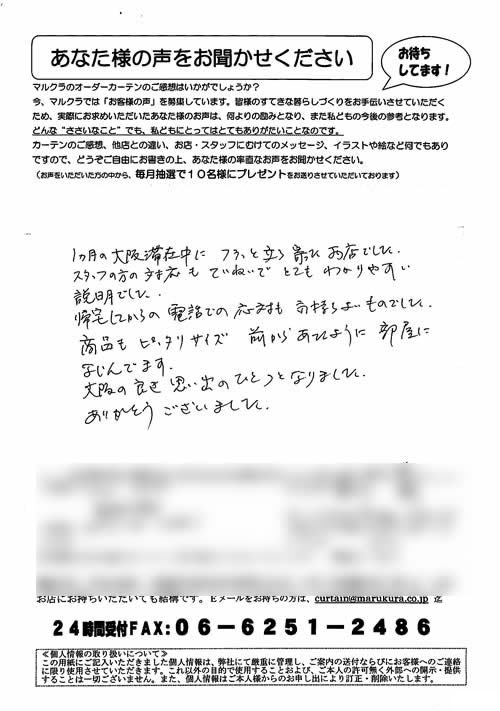 あなた様の声をお聞かせください
お待ち
してます！
マルクラのオーダーカーテンのご感想はいかがでしょうか？
今、マルクラでは「お客様の声」を募集しています。皆様のすてきな暮らしづくりをお手伝いさせていただく
ため、実際にお求めいただいたあなた様のお声は、何よりの励みとなり、また私どもの今後の参考となります。
どんな“ささいなこと”でも、私どもにとってはとてもありがたいことなのです。
カーテンのご感想、他店との違い、お店・スタッフにむけてのメッセージ、イラストや絵など何でもあり
ですので、どうぞご自由にお書きの上、あなた様の率直なお声をお聞かせください。
（お声をいただいた方の中から、毎月抽選で１０名様にプレゼントをお送りさせていただいております）
1ヶ月の大阪滞在中に フラッと立ち寄ったお店でした.
スタッフの方の対応も ていねいで とても わかりやすい
説明でした.
帰宅してからの 電話での 応対も 気持ちよいものでした.
商品も ピッタリサイズ 前からあったように 部屋に
なじんでます.
大阪の良き 思い出のひとつとなりました.
ありがとうございました.
お店にお持ちいただいても結構です。Eメールをお持ちの方は、curtain@marukura.co.jp 迄
２４時間受付FAX：０６－６２５１－２４８６
≪個人情報の取り扱いについて≫
この用紙にご記入いただきました個人情報は、弊社にて厳重に管理し、ご案内の送付ならびにお客様へのご連絡
に限り使用させていただきます。これ以外の目的で使用することおよび、ご本人の許可無く外部への開示・提供
することは一切ございません。また、個人情報はご本人様からのお申し出により訂正・削除いたします。